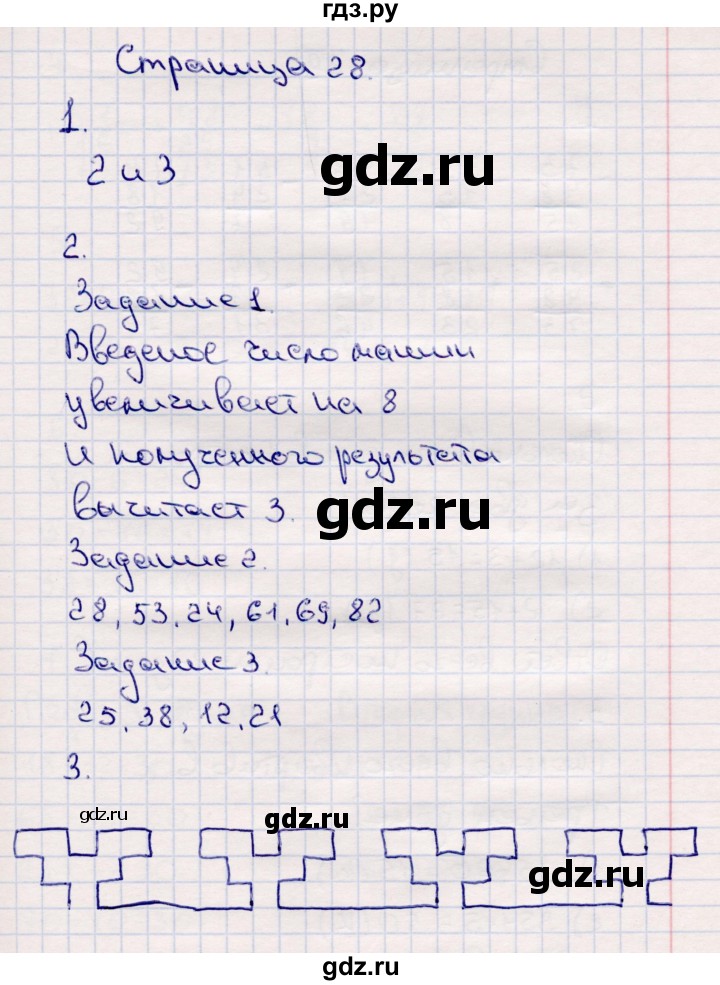 гдз.ру
Страница 28.
1.
2 и 3
gdz.ru
2.
Задание 1.
Введеное число машин
увеличивает на 8
и полученного результата
вычитает 3.
gdz.ru
Задание 2.
28, 53. 24, 61. 69, 82
Задание 3.
25. 38, 12. 21
3.
gdz.ru
gdz.ru
gdz.ru
gdz.ru